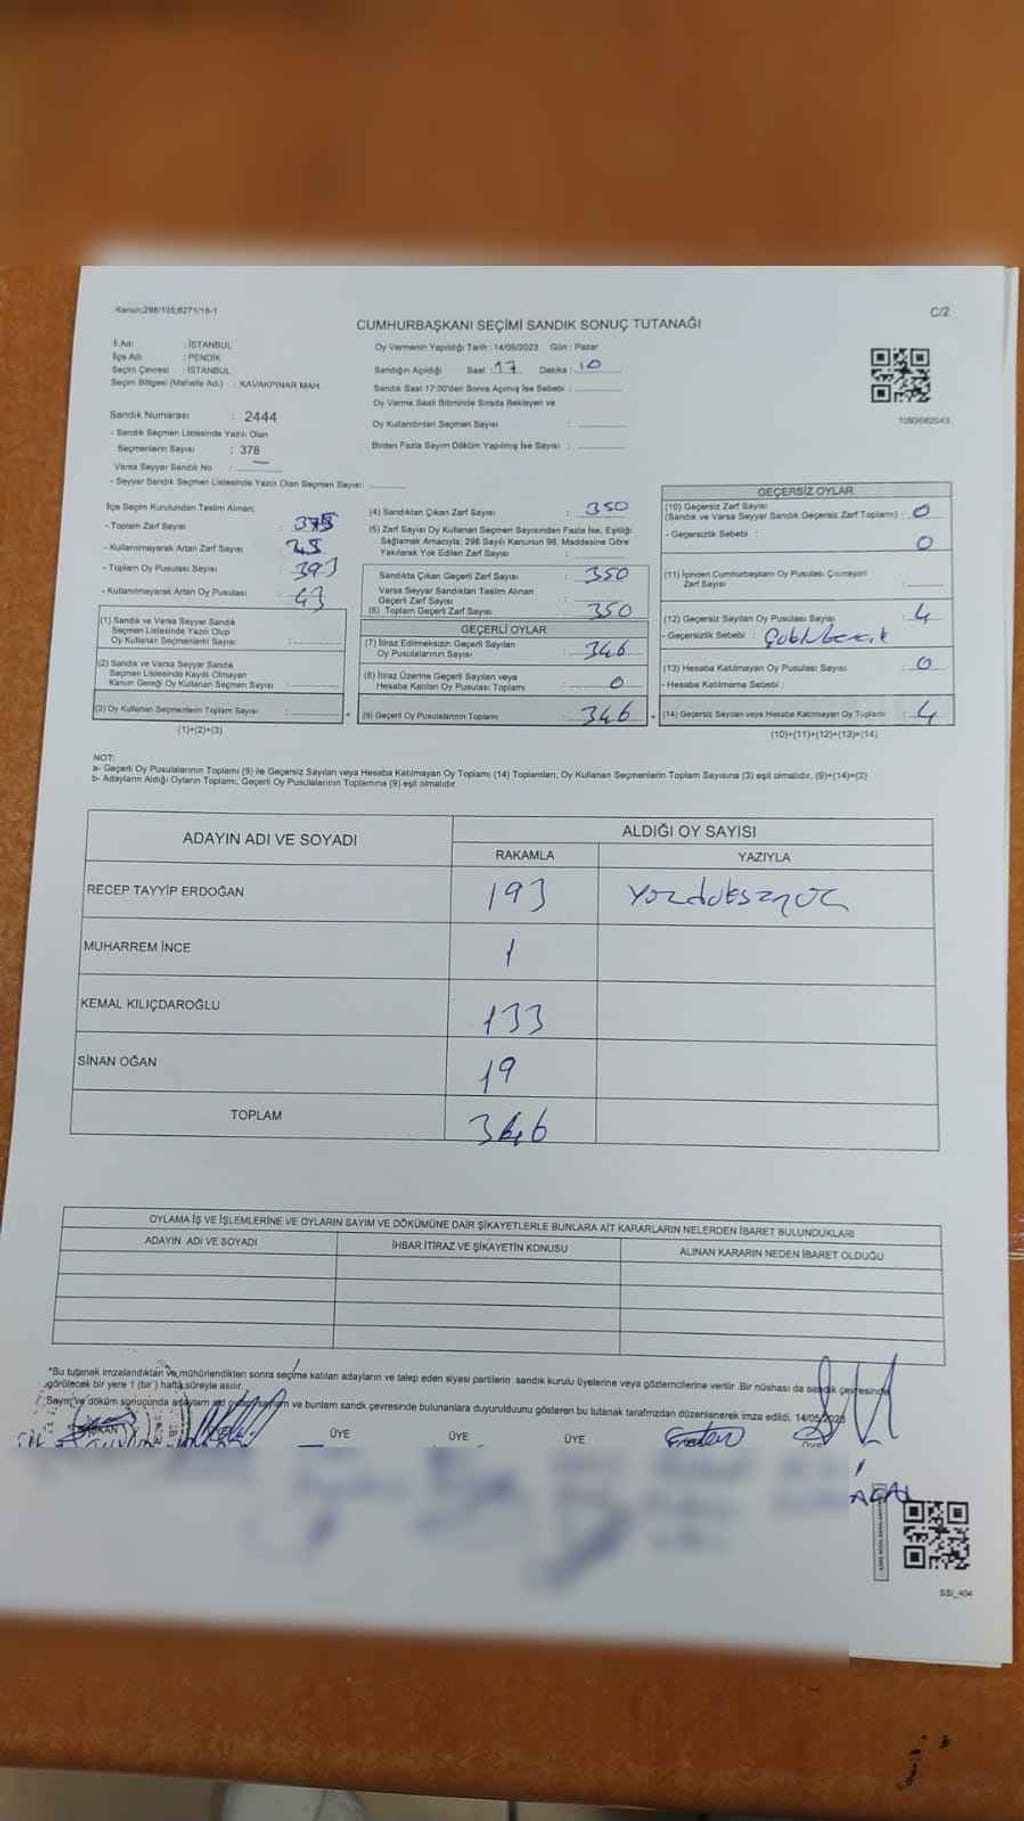 Kanun;298/105;6271/16-1
C/2
CUMHURBAŞKANI SEÇİMİ SANDIK SONUÇ TUTANAĞI
İl Adı : İSTANBUL
İlçe Adı : PENDİK
Seçim Çevresi : İSTANBUL
Seçim Bölgesi (Mahalle Adı) : KAVAKPINAR MAH.
Sandık Numarası : 2444
- Sandık Seçmen Listesinde Yazılı Olan
Seçmenlerin Sayısı : 378
Varsa Seyyar Sandık No :
- Seyyar Sandık Seçmen Listesinde Yazılı Olan Seçmen Sayısı :
Oy Vermenin Yapıldığı Tarih : 14/05/2023 Gün : Pazar
Sandığın Açıldığı Saat : 17 Dakika : 10
Sandık Saat 17:00'den Sonra Açılmış İse Sebebi :
Oy Verme Saati Bitiminde Sırada Bekleyen ve
Oy Kullandırılan Seçmen Sayısı :
Birden Fazla Sayım Döküm Yapılmış İse Sayısı :
1080682043
İlçe Seçim Kurulundan Teslim Alınan;
- Toplam Zarf Sayısı :
- Kullanılmayarak Artan Zarf Sayısı :
- Toplam Oy Pusulası Sayısı : 393
- Kullanılmayarak Artan Oy Pusulası : 43
(1) Sandık ve Varsa Seyyar Sandık
Seçmen Listesinde Yazılı Olup
Oy Kullanan Seçmenlerin Sayısı :
(2) Sandık ve Varsa Seyyar Sandık
Seçmen Listesinde Kayıtlı Olmayan
Kanun Gereği Oy Kullanan Seçmen Sayısı :
(3) Oy Kullanan Seçmenlerin Toplam Sayısı :
(1)+(2)=(3)
(4) Sandıktan Çıkan Zarf Sayısı : 350
(5) Zarf Sayısı Oy Kullanan Seçmen Sayısından Fazla İse, Eşitliği
Sağlamak Amacıyla; 298 Sayılı Kanunun 98. Maddesine Göre
Yakılarak Yok Edilen Zarf Sayısı :
Sandıkta Çıkan Geçerli Zarf Sayısı : 350
Varsa Seyyar Sandıktan Teslim Alınan
Geçerli Zarf Sayısı :
(6) Toplam Geçerli Zarf Sayısı : 350
GEÇERLİ OYLAR
(7) İtiraz Edilmeksizin Geçerli Sayılan
Oy Pusulalarının Sayısı : 346
(8) İtiraz Üzerine Geçerli Sayılan veya
Hesaba Katılan Oy Pusulası Toplamı : 0
(9) Geçerli Oy Pusulalarının Toplamı : 346
GEÇERSİZ OYLAR
(10) Geçersiz Zarf Sayısı
(Sandık ve Varsa Seyyar Sandık Geçersiz Zarf Toplamı) : 0
- Geçersizlik Sebebi : 0
(11) İçinden Cumhurbaşkanı Oy Pusulası Çıkmayan
Zarf Sayısı :
(12) Geçersiz Sayılan Oy Pusulası Sayısı : 4
- Geçersizlik Sebebi :
(13) Hesaba Katılmayan Oy Pusulası Sayısı : 0
- Hesaba Katılmama Sebebi :
(14) Geçersiz Sayılan veya Hesaba Katılmayan Oy Toplamı : 4
(10)+(11)+(12)+(13)=(14)
NOT:
a- Geçerli Oy Pusulalarının Toplamı (9) ile Geçersiz Sayılan veya Hesaba Katılmayan Oy Toplamı (14) Toplamları, Oy Kullanan Seçmenlerin Toplam Sayısına (3) eşit olmalıdır. (9)+(14)=(3)
b- Adayların Aldığı Oyların Toplamı, Geçerli Oy Pusulalarının Toplamına (9) eşit olmalıdır.
ADAYIN ADI VE SOYADI
ALDIĞI OY SAYISI
RAKAMLA YAZIYLA
RECEP TAYYİP ERDOĞAN 193
MUHARREM İNCE 1
KEMAL KILIÇDAROĞLU 133
SİNAN OĞAN 19
TOPLAM 346
OYLAMA İŞ VE İŞLEMLERİNE VE OYLARIN SAYIM VE DÖKÜMÜNE DAİR ŞİKAYETLERLE BUNLARA AİT KARARLARIN NELERDEN İBARET BULUNDUKLARI
ADAYIN ADI VE SOYADI İHBAR İTİRAZ VE ŞİKAYETİN KONUSU ALINAN KARARIN NEDEN İBARET OLDUĞU
*Bu tutanak imzalandıktan ve mühürlendikten sonra seçime katılan adayların ve talep eden siyasi partilerin sandık kurulu üyelerine veya gözlemcilerine verilir. Bir nüshası da sandık çevresinde
görülecek bir yere 1 (bir) hafta süreyle asılır.
Sayım ve döküm sonucunda adayların ve bunların sandık çevresinde bulunanlara duyurulduğunu gösteren bu tutanak tarafımızdan düzenlenerek imza edildi. 14/05/2023
ÜYE ÜYE ÜYE
SSI_404